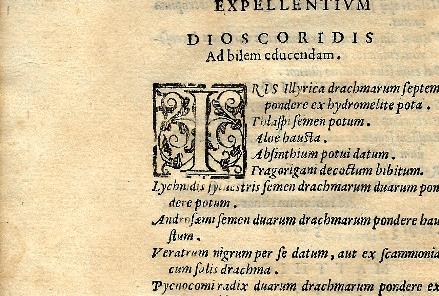 EXPELLENTIVM
DIOSCORIDIS
Ad bilem educendam.
IRIS Illyrica drachmarum septem
pondere ex hydromelite pota.
Tblaspi semen potum.
Aloe hausta.
Absinthium potui datum.
Tragorigani decoctum bibitum.
Lychnidis syluestris semen drachmarum duarum pon
dere potum.
Androsæmi semen duarum drachmarum pondere hau
stum.
Veratrum nigrum per se datum, aut ex scammonia
cum salis drachma.
Pycnocomi radix duarum drachmarum pondere ex